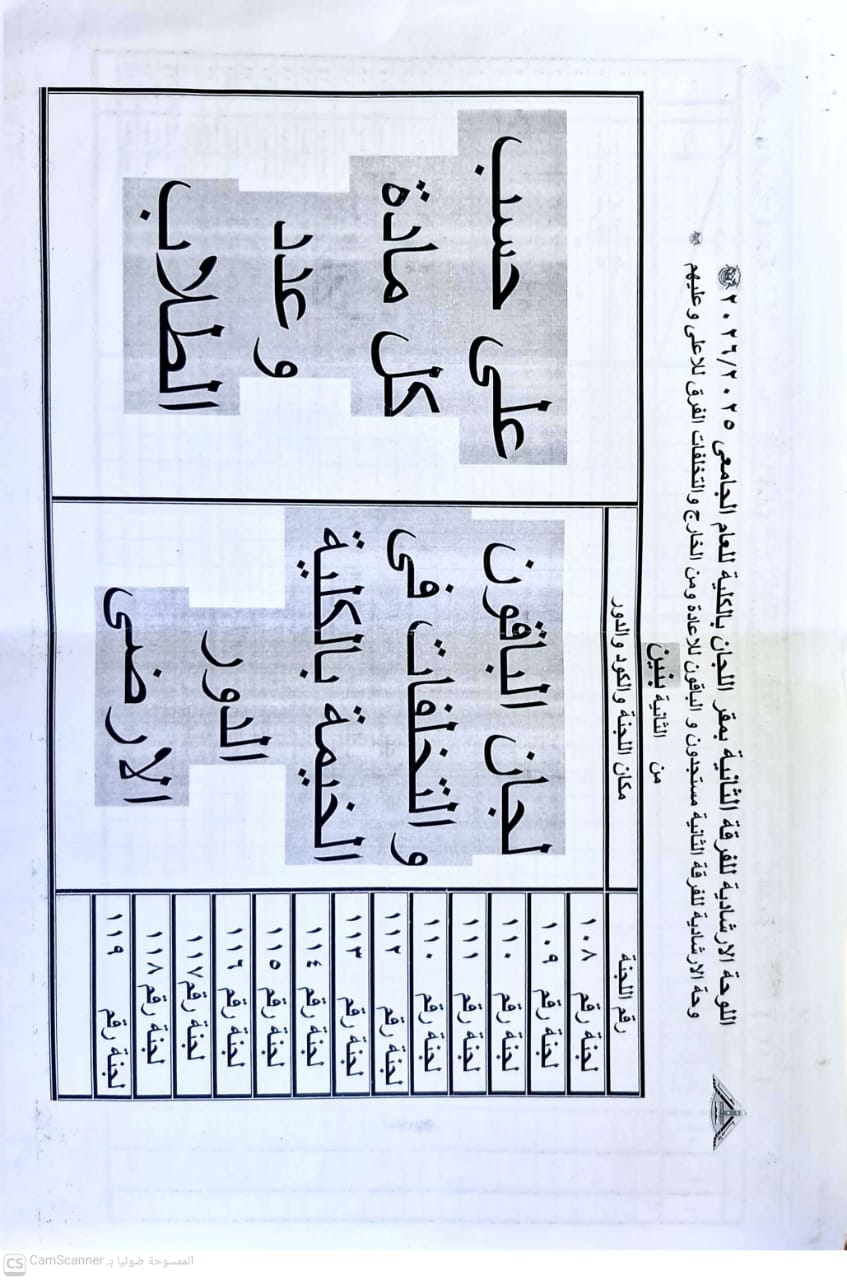 اللوحة الارشادية للفرقة الثانية بمقر اللجان بالكلية للعام الجامعى ٢٠٢٦/٢٠٢٥
وحة الارشادية للفرقة الثانية مستجدون و الباقون للاعادة ومن الخارج والتخلفات الفرق للاعلى وعليهم
من الثانية بنين
رقم اللجنة
مكان اللجنة والكود والدور
لجنة رقم ١٠٨
لجنة رقم ١٠٩
لجنة رقم ١١٠
لجنة رقم ١١١
لجنة رقم ١١٠
لجنة رقم ١١٢
لجنة رقم ١١٣
لجنة رقم ١١٤
لجنة رقم ١١٥
لجنة رقم ١١٦
لجنة رقم ١١٧
لجنة رقم ١١٨
لجنة رقم ١١٩
لجان الباقون
و التخلفات فى
الخيمة بالكلية
الدور
الارضى
على حسب
كل مادة
وعدد
الطلاب
الممسوحة ضوئيا بـ CamScanner
CS